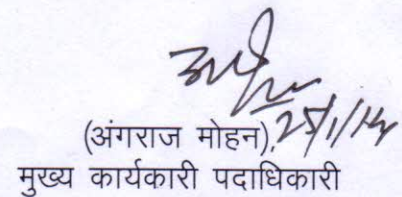 (अंगराज मोहन), 25/1/14
मुख्य कार्यकारी पदाधिकारी